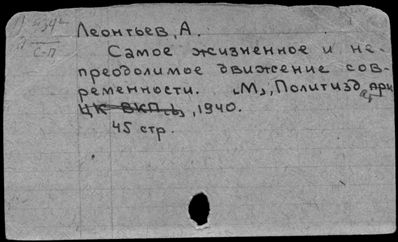 Леонтьев, А.
Самое жизненное и не-
преодолимое движение сов-
ременности. М., Политизд
ЦК ВКП(б), 1940.
45 стр.
С-П